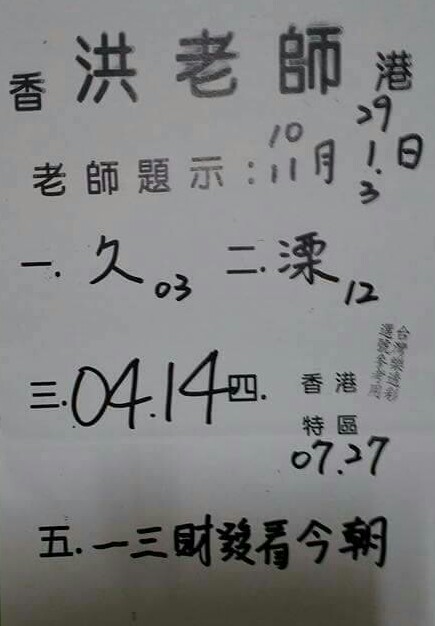 香 洪老師 港
老師題示：10 11月 29 1. 3日
一. 久 03 二. 溧 12
三. 04.14 四. 香港特區 07.27
台灣樂透彩
選號參考用
五. 一三財發看今朝